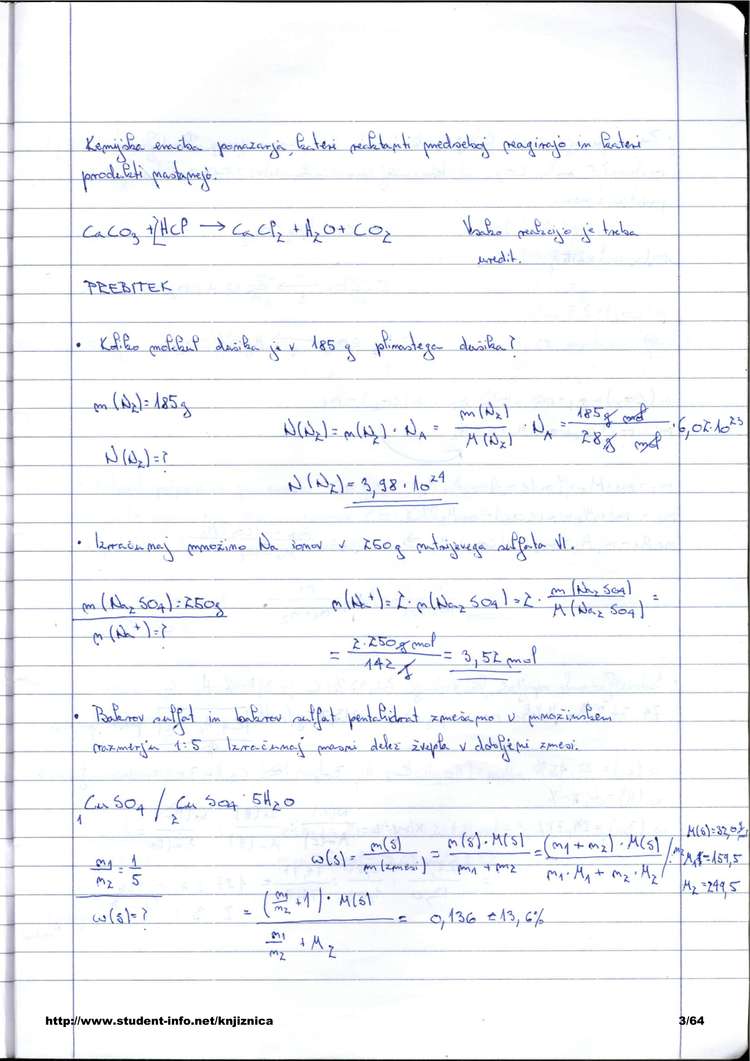 Kemijska enačba ponazarja, kateri reaktanti medseboj reagirajo in kateri
produkti nastanejo.
CaCO₃ + 2HCl → CaCl₂ + H₂O + CO₂ Vsako reakcijo je treba
uredit.
PREBITEK
• Koliko molekul dušika je v 185 g plinastega dušika?
m(N₂) = 185g
N(N₂) = n(N₂) · N_A = m(N₂) / M(N₂) · N_A = 185g mol / 28g mol · 6,02·10²³
N(N₂) = ?
N(N₂) = 3,98 · 10²⁴
• Izračunaj množino Na ionov v 250g natrijevega sulfata VI.
m(Na₂SO₄) = 250g
n(Na⁺) = 2 · n(Na₂SO₄) = 2 · m(Na₂SO₄) / M(Na₂SO₄) =
n(Na⁺) = ?
= 2·250g mol / 142g = 3,52 mol
• Bakrov sulfat in bakrov sulfat pentahidrat zmešamo v množinskem
razmerju 1:5. Izračunaj masni delež žvepla v dobljeni zmesi.
₁CuSO₄ / ₂CuSO₄·5H₂O
n₁/n₂ = 1/5
w(S) = m(S) / m(zmesi) = n(S)·M(S) / m₁+m₂ = (n₁+n₂)·M(S) / n₁·M₁+n₂·M₂ /n₂
M(S)=32,0
M₁=159,5
M₂=249,5
w(S) = ?
= (n₁/n₂ + 1)·M(S) / n₁/n₂ + M₂ = 0,136 = 13,6%
http://www.student-info.net/knjiznica 3/64